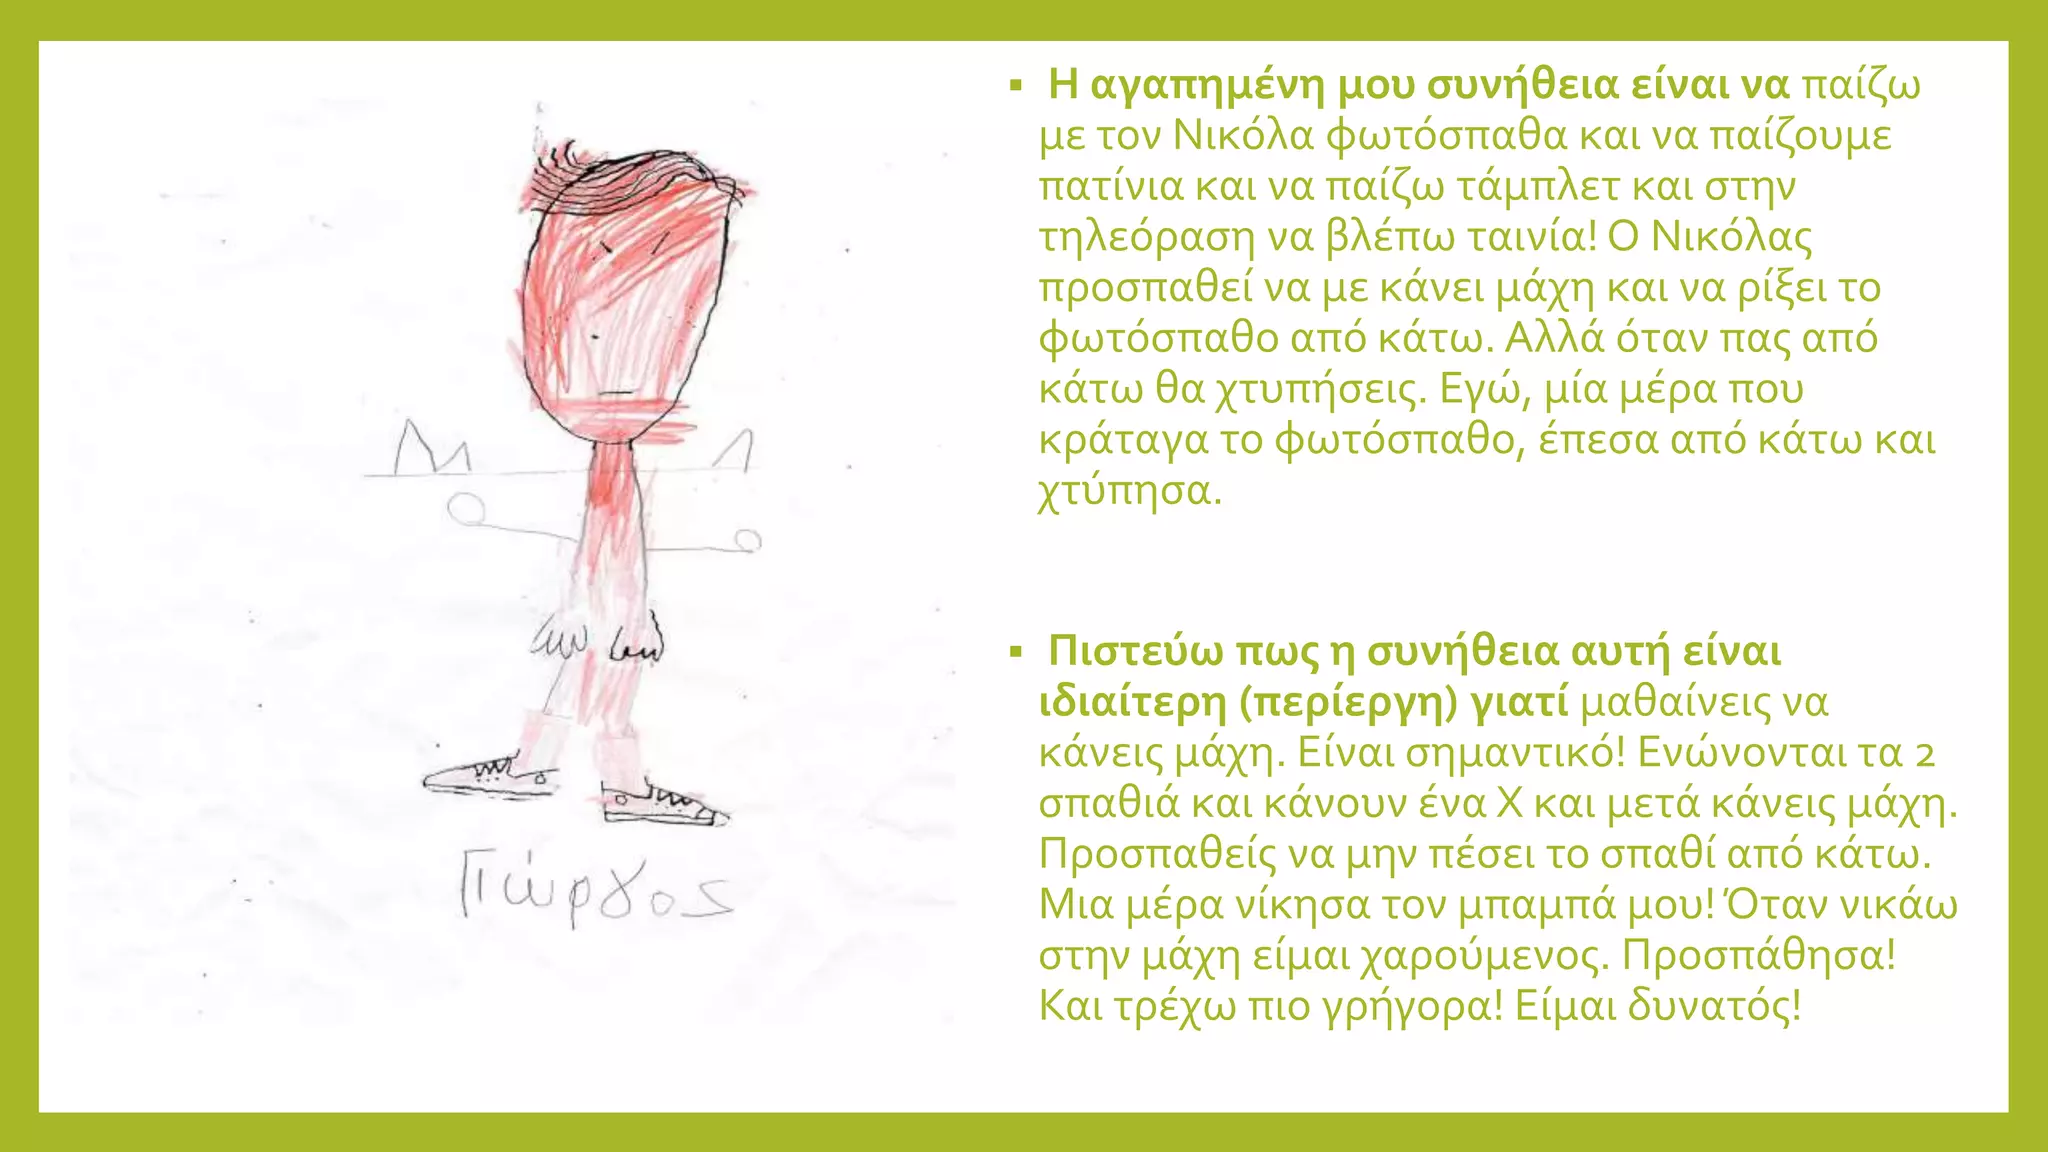 ▪ Η αγαπημένη μου συνήθεια είναι να παίζω
με τον Νικόλα φωτόσπαθα και να παίζουμε
πατίνια και να παίζω τάμπλετ και στην
τηλεόραση να βλέπω ταινία! Ο Νικόλας
προσπαθεί να με κάνει μάχη και να ρίξει το
φωτόσπαθο από κάτω. Αλλά όταν πας από
κάτω θα χτυπήσεις. Εγώ, μία μέρα που
κράταγα το φωτόσπαθο, έπεσα από κάτω και
χτύπησα.
▪ Πιστεύω πως η συνήθεια αυτή είναι
ιδιαίτερη (περίεργη) γιατί μαθαίνεις να
κάνεις μάχη. Είναι σημαντικό! Ενώνονται τα 2
σπαθιά και κάνουν ένα Χ και μετά κάνεις μάχη.
Προσπαθείς να μην πέσει το σπαθί από κάτω.
Μια μέρα νίκησα τον μπαμπά μου! Όταν νικάω
στην μάχη είμαι χαρούμενος. Προσπάθησα!
Και τρέχω πιο γρήγορα! Είμαι δυνατός!
Γιώργος